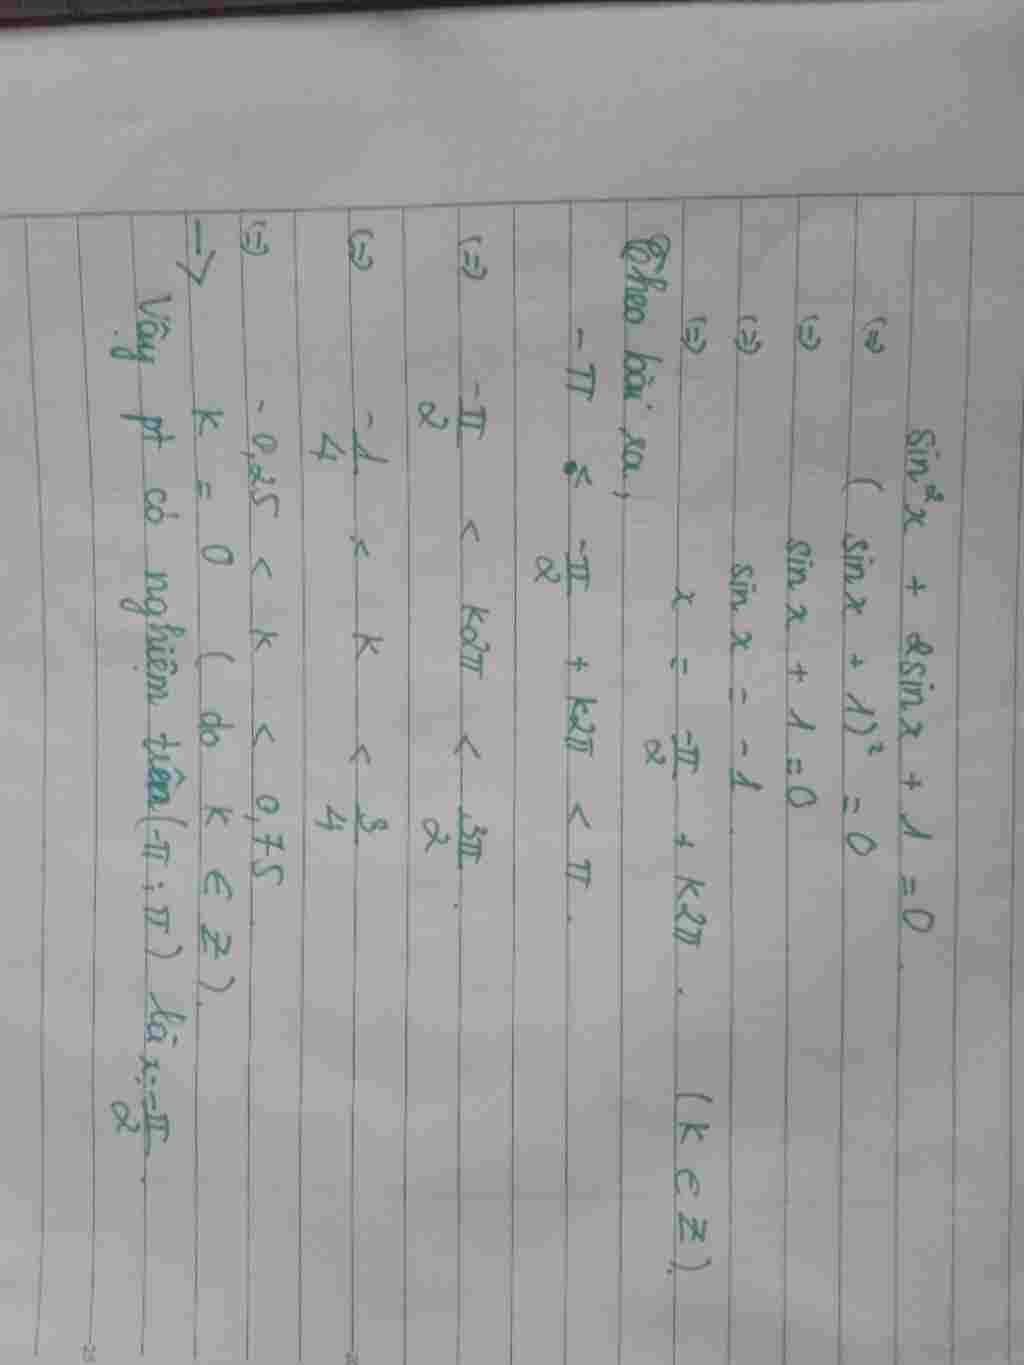 sin²x + 2sinx + 1 = 0.
(=) ( sinx + 1)² = 0
(=) sinx + 1 = 0
(=) sin x = -1.
(=) x = -π/2 + k2π. (k ∈ Z).
Theo bài ra,
-π < -π/2 + k2π < π.
(=) -π/2 < k2π < 3π/2.
(=) -1/4 < k < 3/4
(=) -0,25 < k < 0,75.
→ k = 0 (do k ∈ Z).
Vậy pt có nghiệm trên (-π; π) là x = -π/2.